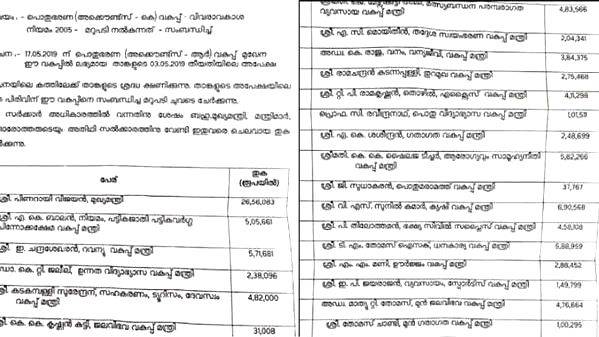 യം :- പൊതുഭരണ (അക്കൗണ്ട്സ് - കെ) വകുപ്പ് - വിവരാവകാശ
നിയമം 2005 - മറുപടി നൽകുന്നത് - സംബന്ധിച്ച്
ചന :- 17.05.2019 ന് പൊതുഭരണ (അക്കൗണ്ട്സ് - ആർ) വകുപ്പ് മുഖേന
ഈ വകുപ്പിൽ ലഭ്യമായ താങ്കളുടെ 03.05.2019 തീയതിയിലെ അപേക്ഷ
നയിലെ കത്തിലേക്ക് താങ്കളുടെ ശ്രദ്ധ ക്ഷണിക്കുന്നു. താങ്കളുടെ അപേക്ഷയിലെ
പിരിവിന് ഈ വകുപ്പിനെ സംബന്ധിച്ച മറുപടി ചുവടെ ചേർക്കുന്നു.
സർക്കാർ അധികാരത്തിൽ വന്നതിനു ശേഷം ബഹു.മുഖ്യമന്ത്രി, മന്ത്രിമാർ,
ഓരോത്തരുടെയും അതിഥി സൽക്കാരത്തിനു വേണ്ടി ഇതുവരെ ചെലവായ തുക
ർക്കുന്നു.
പേര് തുക
(രൂപയിൽ)
ശ്രീ. പിണറായി വിജയൻ, മുഖ്യമന്ത്രി 26,56,083
ശ്രീ. എ. കെ. ബാലൻ, നിയമം, പട്ടികജാതി പട്ടികവർഗ്ഗ
പിന്നോക്കക്ഷേമ വകുപ്പ് മന്ത്രി 5,05,661
ശ്രീ. ഇ. ചന്ദ്രശേഖരൻ, റവന്യൂ വകുപ്പ് മന്ത്രി 5,71,681
ഡോ. കെ. റ്റി. ജലീൽ, ഉന്നത വിദ്യാഭ്യാസ വകുപ്പ് മന്ത്രി 2,38,096
ശ്രീ. കടകംപള്ളി സുരേന്ദ്രൻ, സഹകരണം, ടൂറിസം, ദേവസ്വം
വകുപ്പ് മന്ത്രി 4,82,000
ശ്രീ. കെ. കെ. കൃഷ്ണൻ കുട്ടി, ജലവിഭവ വകുപ്പ് മന്ത്രി 31,008
വ്യവസായ വകുപ്പ് മന്ത്രി 4,83,566
ശ്രീ. എ. സി. മൊയ്തീൻ, തദ്ദേശ സ്വയംഭരണ വകുപ്പ് മന്ത്രി 2,04,341
അഡ്വ. കെ. രാജു, വനം, വന്യജീവി, വകുപ്പ് മന്ത്രി 3,84,375
ശ്രീ. രാമചന്ദ്രൻ കടന്നപ്പള്ളി, തുറമുഖ വകുപ്പ് മന്ത്രി 2,75,468
ശ്രീ. റ്റി. പി. രാമകൃഷ്ണൻ, തൊഴിൽ, എക്സൈസ് വകുപ്പ് മന്ത്രി 4,11,298
പ്രൊഫ. സി. രവീന്ദ്രനാഥ്, പൊതു വിദ്യാഭ്യാസ വകുപ്പ് മന്ത്രി 1,01,531
ശ്രീ. എ. കെ. ശശീന്ദ്രൻ, ഗതാഗത വകുപ്പ് മന്ത്രി 2,48,699
ശ്രീമതി. കെ. കെ. ഷൈലജ ടീച്ചർ, ആരോഗ്യവും സാമൂഹ്യനീതി
വകുപ്പ് മന്ത്രി 5,82,266
ശ്രീ. ജി. സുധാകരൻ, പൊതുമരാമത്ത് വകുപ്പ് മന്ത്രി 37,767
ശ്രീ. വി. എസ്. സുനിൽ കുമാർ, കൃഷി വകുപ്പ് മന്ത്രി 6,90,568
ശ്രീ. പി. തിലോത്തമൻ, ഭക്ഷ്യ സിവിൽ സപ്ലൈസ് വകുപ്പ് മന്ത്രി 4,58,108
ശ്രീ. ടി. എം. തോമസ് ഐസക്, ധനകാര്യ വകുപ്പ് മന്ത്രി 5,88,959
ശ്രീ. എം. എം. മണി, ഊർജ്ജം വകുപ്പ് മന്ത്രി 2,88,452
ശ്രീ. ഇ. പി. ജയരാജൻ, വ്യവസായം, സ്പോർട്സ് വകുപ്പ് മന്ത്രി 1,49,799
അഡ്വ. മാത്യു റ്റി. തോമസ്, മുൻ ജലവിഭവ വകുപ്പ് മന്ത്രി 4,76,664
ശ്രീ. തോമസ് ചാണ്ടി, മുൻ ഗതാഗത വകുപ്പ് മന്ത്രി 1,00,295